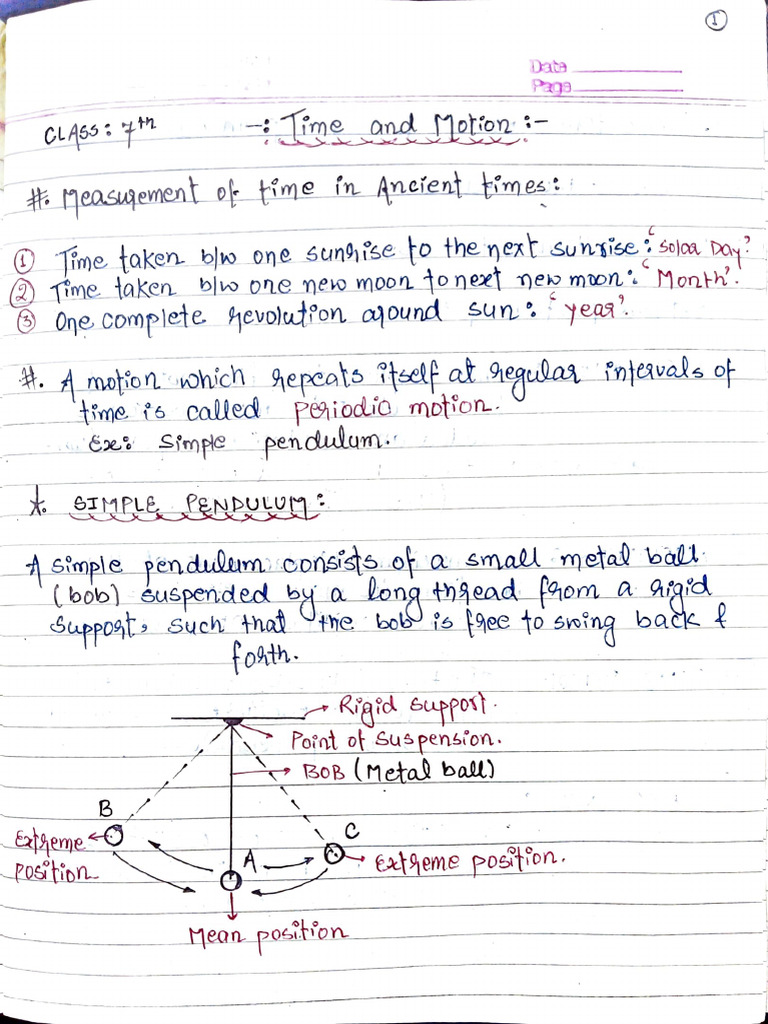 1
Date
Page
CLASS: 7th -: Time and Motion :-
#. Measurement of time in Ancient times:
① Time taken b/w one sunrise to the next sunrise: 'Solar Day'.
② Time taken b/w one new moon to next new moon: 'Month'.
③ One complete revolution around sun: 'year'.
#. A motion which repeats itself at regular intervals of
time is called periodic motion.
Ex: Simple pendulum.
★. SIMPLE PENDULUM:
A simple pendulum consists of a small metal ball
(bob) suspended by a long thread from a rigid
support, such that the bob is free to swing back &
forth.
Rigid support.
Point of suspension.
BOB (Metal ball)
B
C
Extreme
position
A
Extreme position.
Mean position